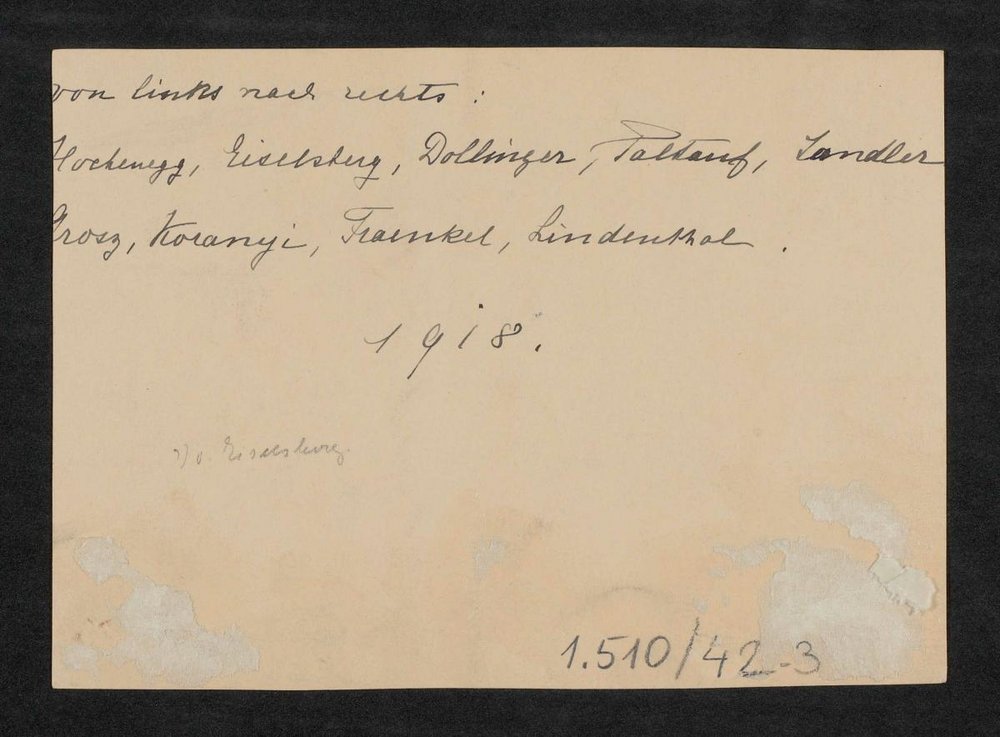 von links nach rechts :
Hochenegg, Eiselsberg, Dollinger, Paltauf, Sandler
Grosz, Koranyi, Fraenkel, Lindenthal .
1918.
v. Eiselsberg.
1.510/42-3